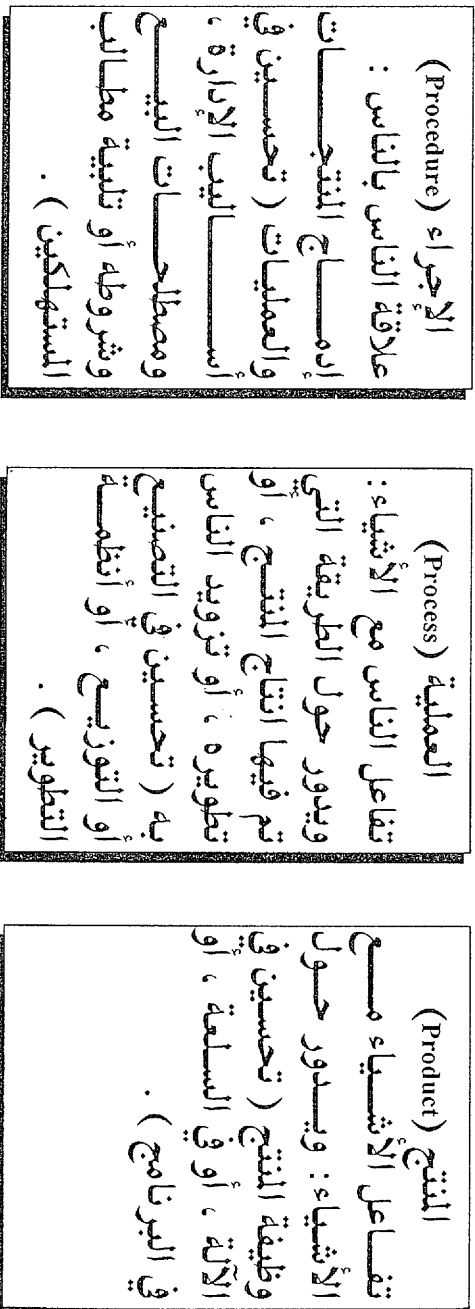 المنتج (Product)
تفاعل الأشياء مع
الأشياء: ويدور حول
وظيفة المنتج ( تحسين في
الآلة ، أو في السلعة ، أو
في البرنامج ) .
العملية (Process)
تفاعل الناس مع الأشياء:
ويدور حول الطريقة التي
تم فيها انتاج المنتج ، أو
تطويره ، أو تزويد الناس
به ( تحسين في التصنيع
أو التوزيع ، أو أنظمة
التطوير ) .
الإجراء (Procedure)
علاقة الناس بالناس :
إدماج المنتجات
والعمليات ( تحسين في
أساليب الإدارة ،
ومصطلحات البيع
وشروطه أو تلبية مطالب
المستهلكين ) .